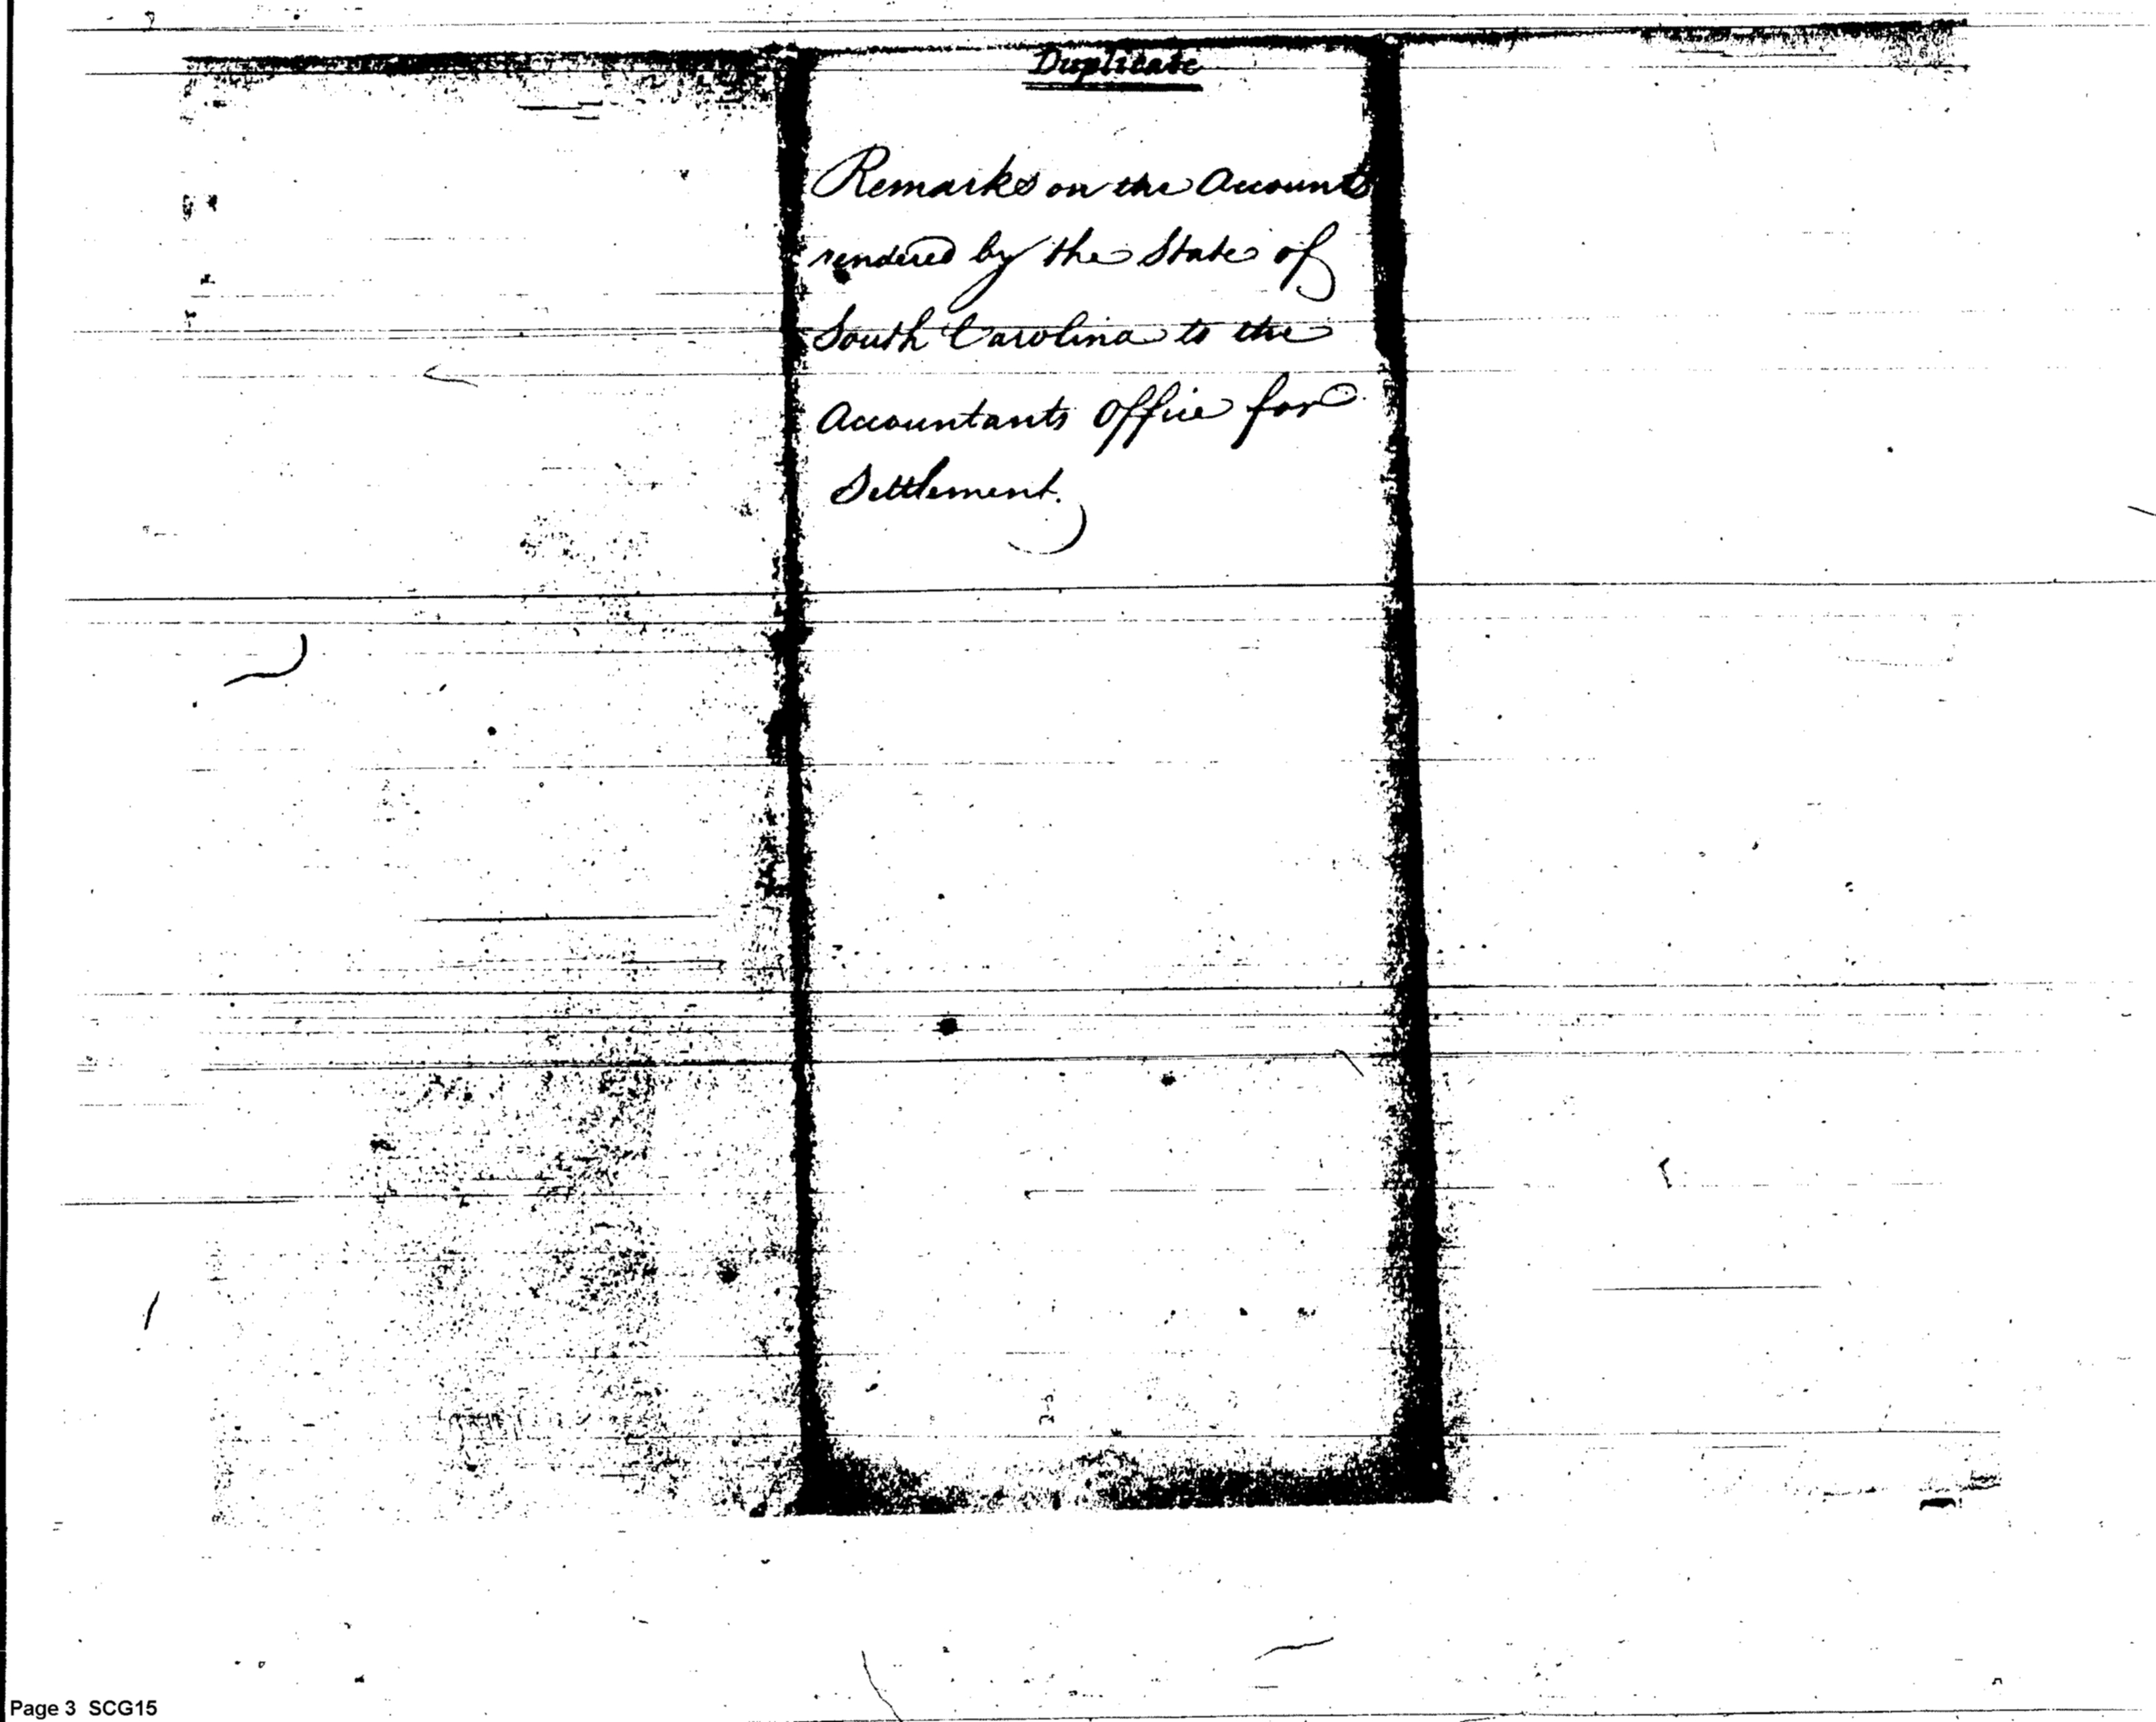 Duplicate
Remarks on the Accounts
rendered by the State of
South Carolina to the
Accountants Office for
Settlement.
Page 3 SCG15